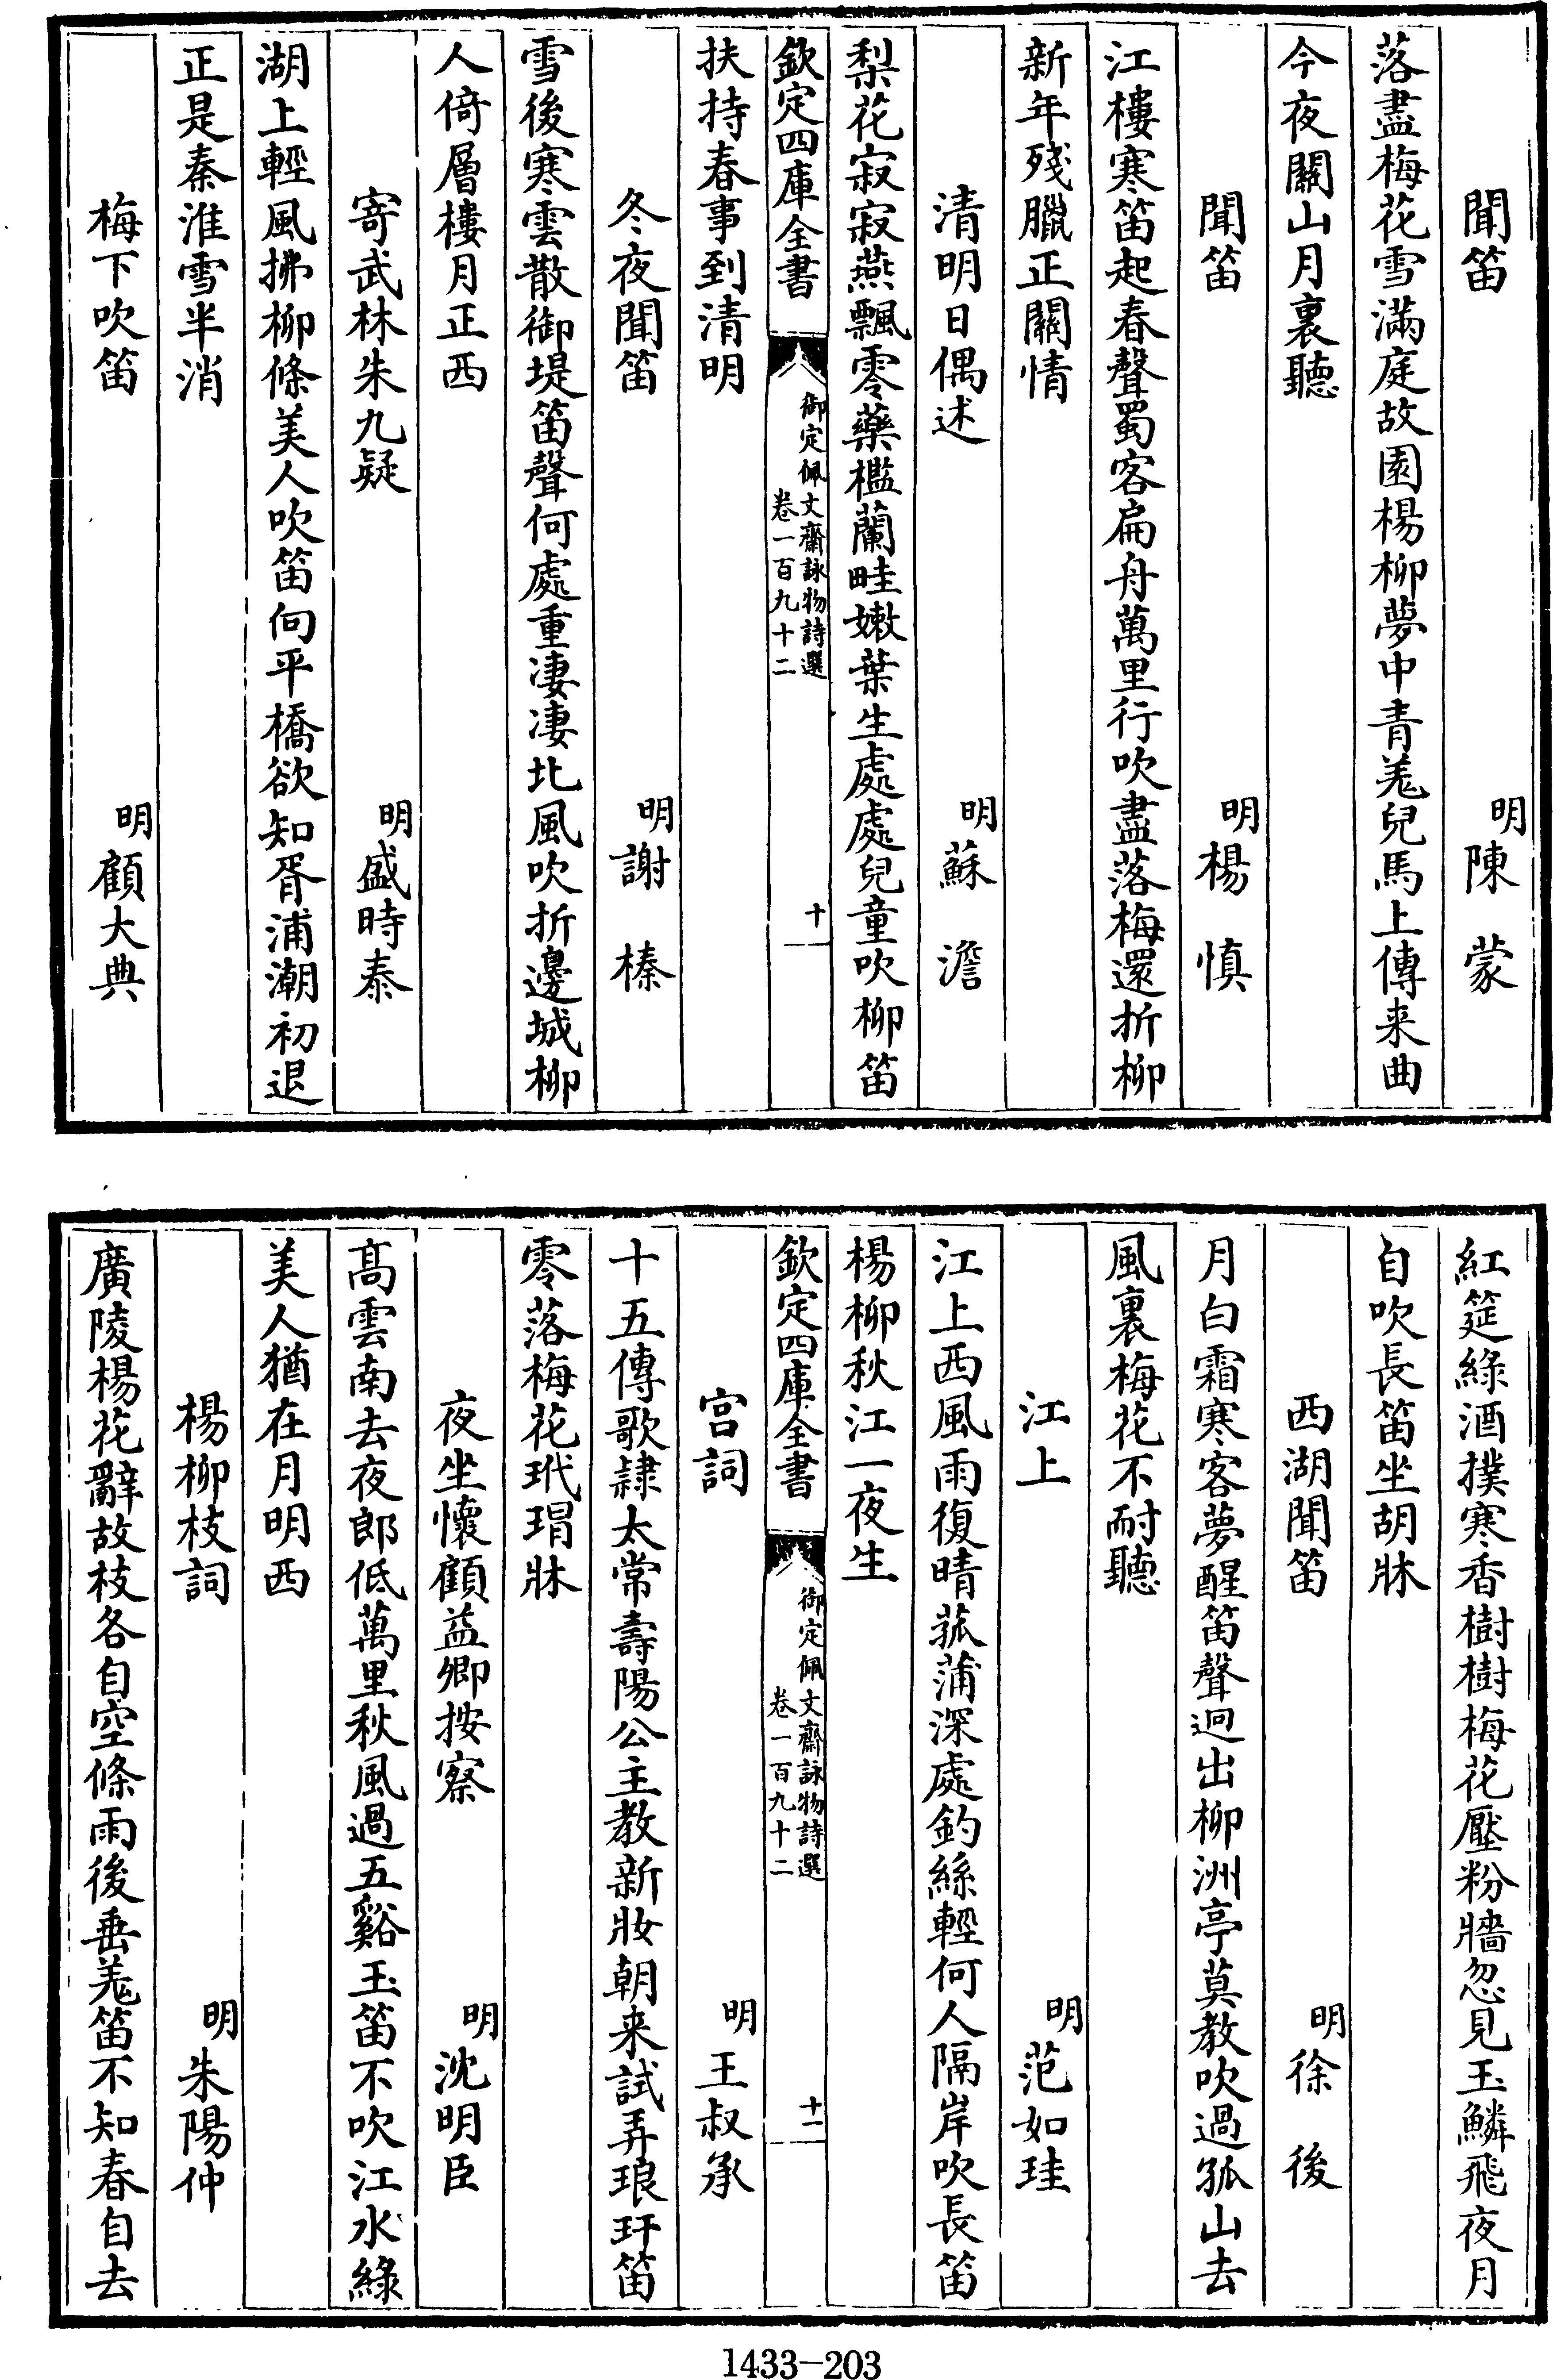 聞笛　明陳蒙
落盡梅花雪滿庭故園楊柳夢中青羗兒馬上傳来曲
今夜關山月裏聽
聞笛　明楊慎
江樓寒笛起春聲蜀客扁舟萬里行吹盡落梅還折柳
新年殘臘正關情
清明日偶述　明蘇澹
梨花寂寂燕飄零藥檻蘭畦嫩葉生處處兒童吹柳笛
欽定四庫全書
御定佩文齋詠物詩選
卷一百九十二
十
扶持春事到清明
冬夜聞笛　明謝榛
雪後寒雲散御堤笛聲何處重凄凄北風吹折邊城柳
人倚層樓月正西
寄武林朱九疑　明盛時泰
湖上輕風拂柳條美人吹笛向平橋欲知胥浦潮初退
正是秦淮雪半消
梅下吹笛　明顧大典
紅筵綠酒撲寒香樹樹梅花壓粉牆忽見玉鱗飛夜月
自吹長笛坐胡牀
西湖聞笛　明徐後
月白霜寒客夢醒笛聲迥出柳洲亭莫教吹過孤山去
風裏梅花不耐聽
江上　明范如珪
江上西風雨復晴菰蒲深處釣絲輕何人隔岸吹長笛
楊柳秋江一夜生
欽定四庫全書
御定佩文齋詠物詩選
卷一百九十二
十一
宮詞　明王叔承
十五傳歌隷太常壽陽公主教新妝朝来試弄琅玕笛
零落梅花玳瑁牀
夜坐懷顧益卿按察　明沈明臣
高雲南去夜郎低萬里秋風過五谿玉笛不吹江水綠
美人猶在月明西
楊柳枝詞　明朱陽仲
廣陵楊花辭故枝各自空條雨後垂羗笛不知春自去
1433—203